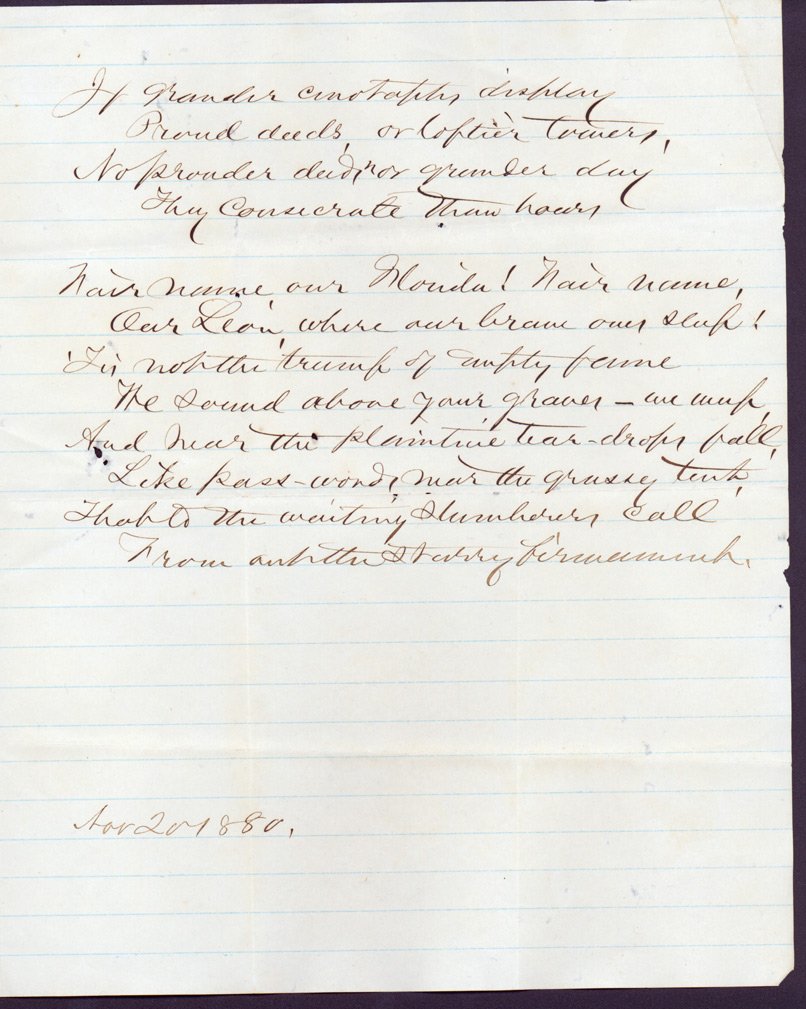 If grander cenotaphs display
Proud deeds, or loftier towers,
No prouder deeds, or grander day
They Consecrate than hours
Fair name, our Florida! Fair name,
Our Leon, where our brave ones sleep!
'Tis not the trump of empty fame
We sound above your graves – we weep,
And hear the plaintive tear-drops fall,
Like pass-words, near the grassy tent,
That to the waiting Slumberers Call
From out the Starry firmament.
Nov 20 1880.